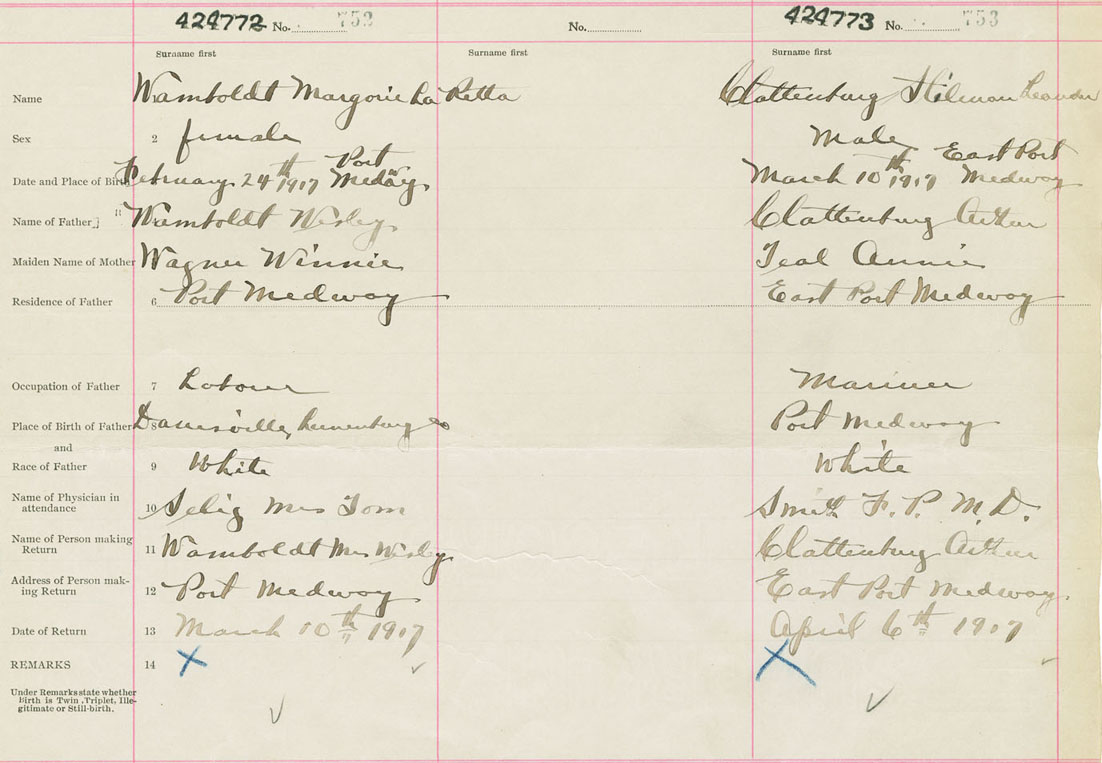 424772 No. 752 No. 424773 No. 753
Surname first Surname first Surname first
Name Wamboldt Margorie La Retta Clattenburg Hilman Leander
Sex 2 female Male
Date and Place of Birth February 24th 1917 Port Medway March 10th 1917 East Port Medway
Name of Father} Wamboldt Wesley Clattenburg Arthur
Maiden Name of Mother Wagner Winnie Teal Annie
Residence of Father 6 Port Medway East Port Medway
Occupation of Father 7 Labourer Mariner
Place of Birth of Father 8 Lunenburg Co Port Medway
and
Race of Father 9 White White
Name of Physician in
attendance 10 Selig Mrs Tom Smith F. P. M. D.
Name of Person making
Return 11 Wamboldt Mrs Wesley Clattenburg Arthur
Address of Person mak-
ing Return 12 Port Medway East Port Medway
Date of Return 13 March 10th 1917 April 6th 1917
REMARKS 14 X X
Under Remarks state whether
Birth is Twin, Triplet, Ille-
gitimate or Still-birth.